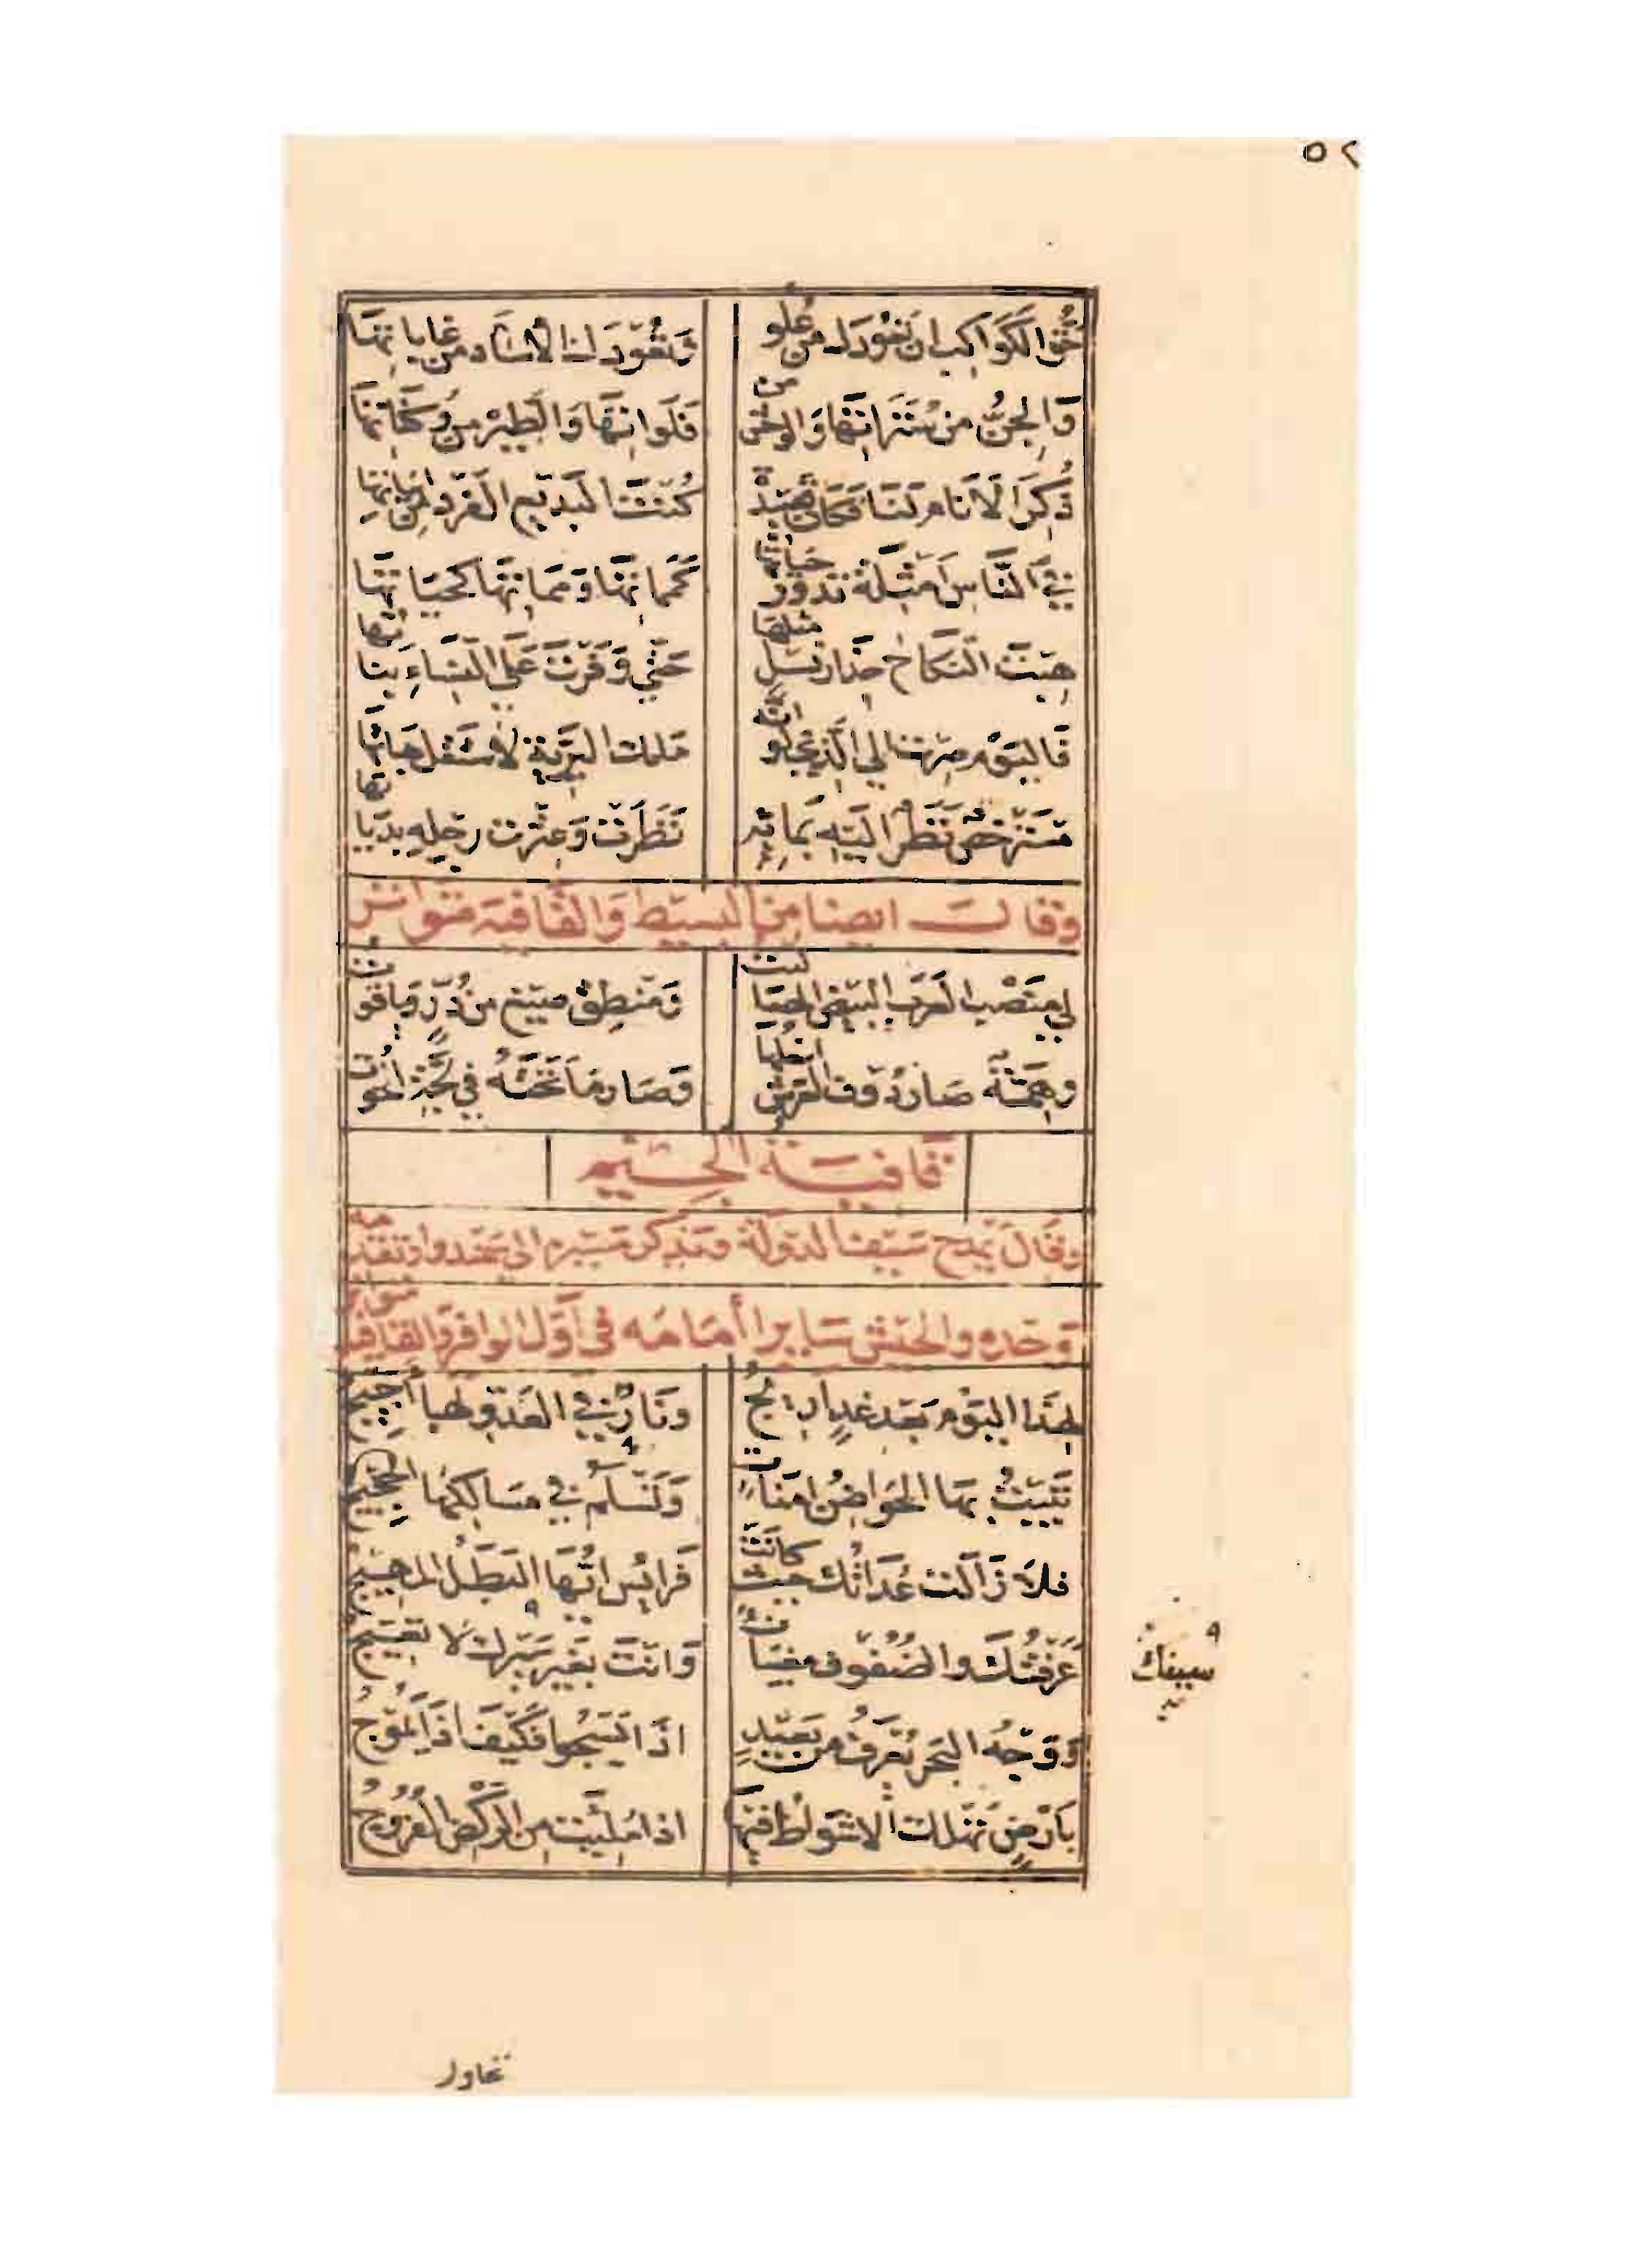 ٥٢
حق الكواكب ان تعودك من علو وتعودك الآساد من غاباتها
والجن من ستراتها والوحش من فلواتها والطير من وكناتها
ذكر الانام لنا فكان قصيدة كنت البديع الفرد من ابياتها
في الناس امثلة تدور حياتها كمماتها ومماتها كحياتها
هبت النكاح حذار نسل مثلها حتى وفرت على النساء بناتها
فاليوم صرت الى الذي لو انه ملك البرية لاستقل هباتها
مسترخص نظر اليه بما به نظرت وعثرت رجله بدياتها
وقال ايضا من البسيط والقافية متواتر
لي منصب العرب البيض المصاليت ومنطق صيغ من در وياقوت
وهمة صار دون العرش اسفلها وصار ما تحته في لجة الحوت
قافية الجيم
وقال يمدح سيف الدولة ويذكر مسيره الى سمندوا وتقدمه
وحده والجيش سايرا أمامه في أول الوافر والقافية متواتر
لهذا اليوم بعد غد اريج ونار في العدو لها أجيج
تبيت بها الحواضن امنات وتسلم في مسالكها الحجيج
فلا زالت عداتك حيث كانت فرايس ايها البطل المهيج
عرفتك والصفوف معبيات وانت بغير سيرك لا تعيج
سيفك
ووجه البحر يعرف من بعيد اذا يسجو فكيف اذا يموج
بأرض تهلك الاشواط فيها اذا مليت من الركض الفروج
تحاول